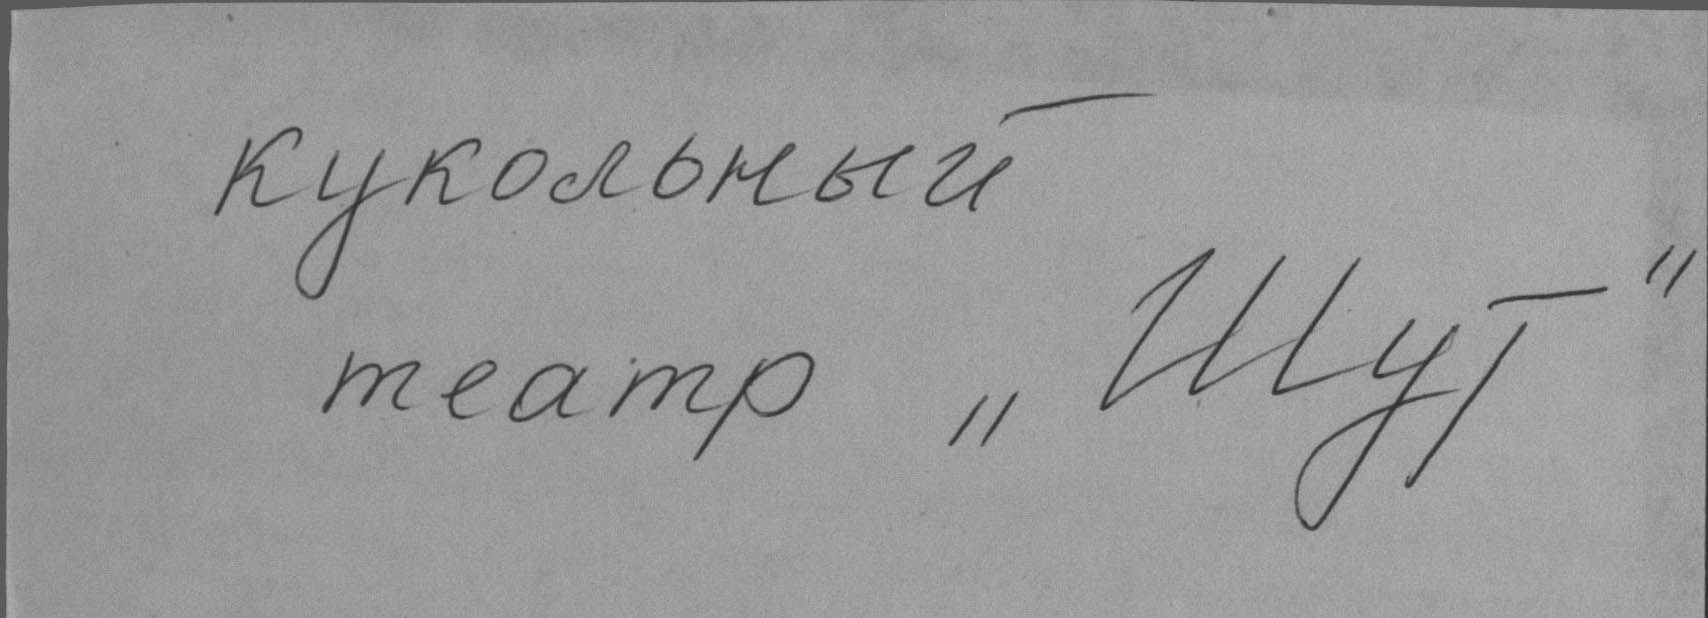 кукольный
театр „Шут"